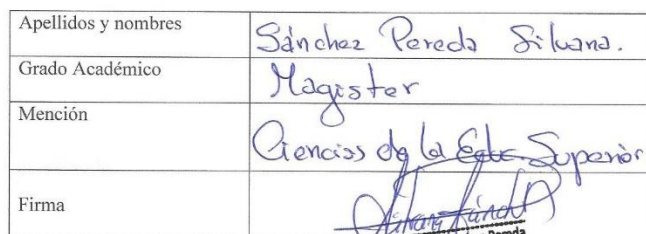 Apellidos y nombres Sánchez Pereda Silvana.
Grado Académico Magister
Mención Ciencias de la Educ. Superior
Firma Silvana Sánch
Pereda